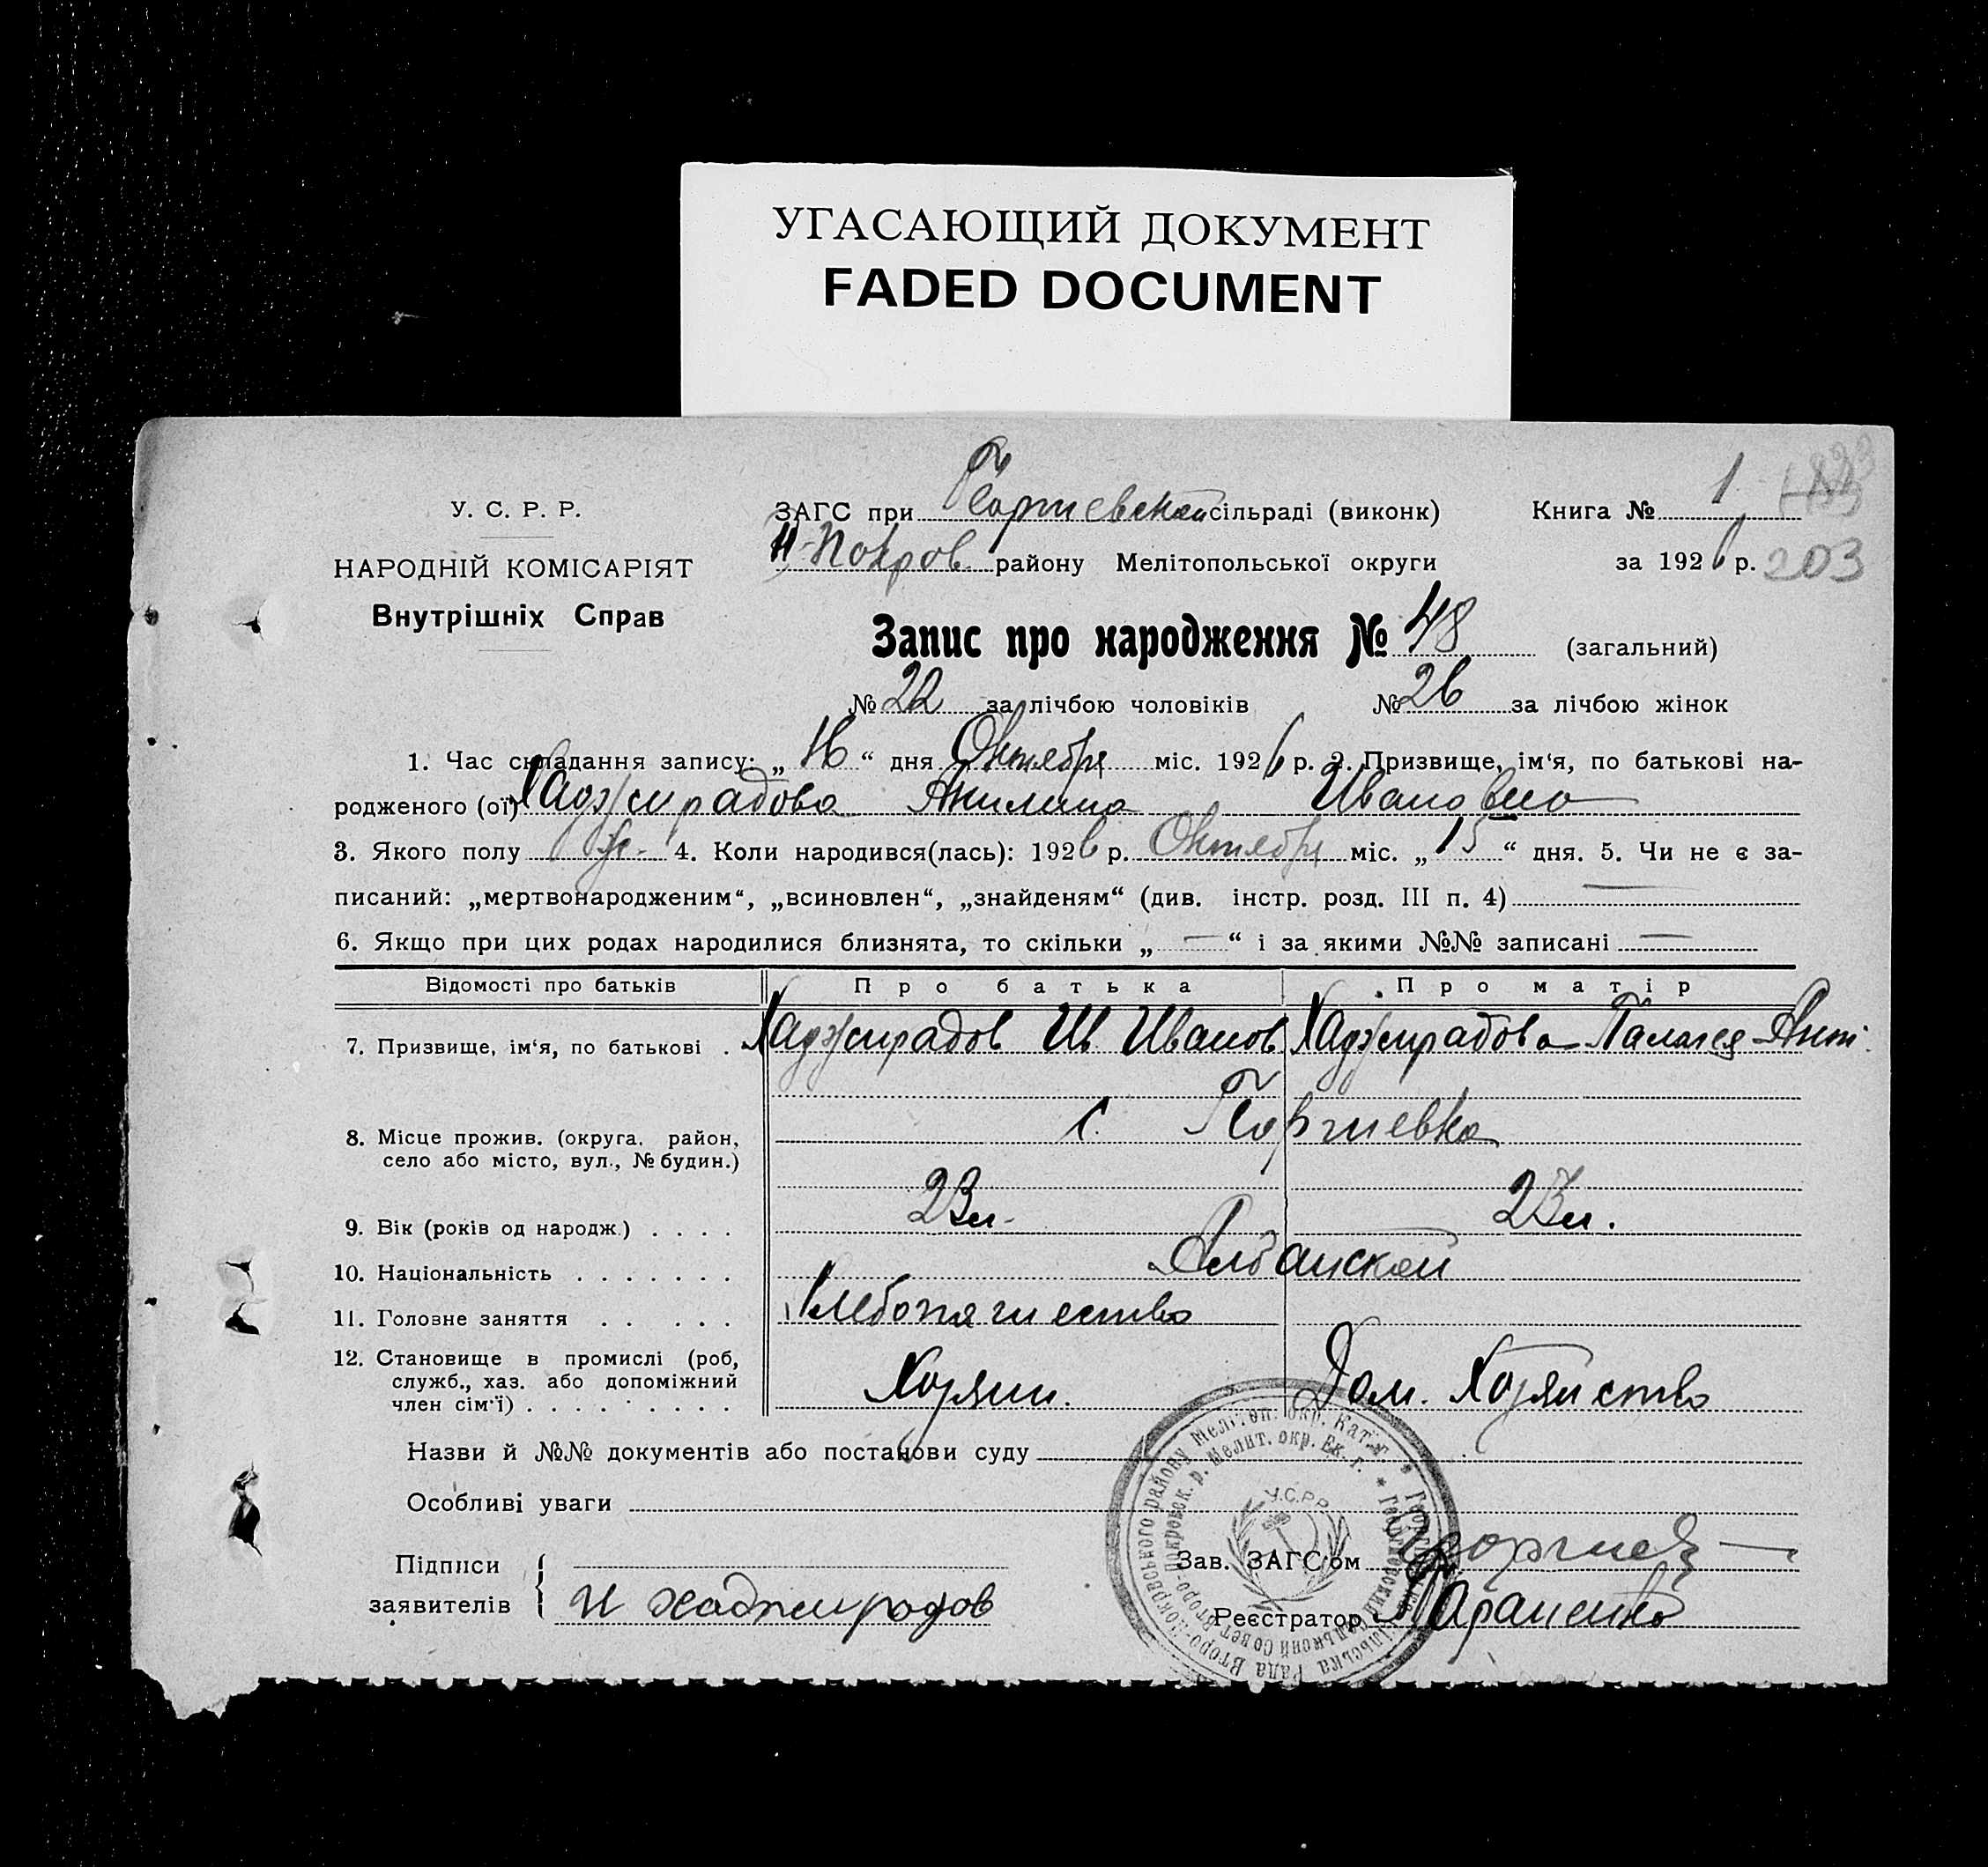 УГАСАЮЩИЙ ДОКУМЕНТ
FADED DOCUMENT
У. С. Р. Р.
НАРОДНІЙ КОМІСАРІЯТ
Внутрішніх Справ
ЗАГС при Георгиевской сільраді (виконк)
Книга № 1
II-Покров. району Мелітопольської округи
за 1926 р. 203
Запис про народження № 48 (загальний)
№ 22 за лічбою чоловіків № 26 за лічбою жінок
1. Час складання запису: „16“ дня Октября міс. 1926 р. 2. Призвище, ім‘я, по батькові на-
родженого (ої) Хаджирадова Акилина Ивановна
3. Якого полу ж. 4. Коли народився(лась): 1926 р. Октября міс. „15“ дня. 5. Чи не є за-
писаний: „мертвонародженим“, „всиновлен“, „знайденям“ (див. інстр. розд. III п. 4) —
6. Якщо при цих родах народилися близнята, то скільки „—“ і за якими №№ записані —
Відомості про батьків Про батька Про матір
7. Призвище, ім‘я, по батькові . Хаджирадов Ив. Иванов Хаджирадова Палагея Ант.
8. Місце прожив. (округа, район,
село або місто, вул., № будин.)
с. Георгиевка
9. Вік (років од народж.) . . . . 23 л. 23 л.
10. Національність . . . . . . . Албанской
11. Головне заняття . . . . . Хлебопашество
12. Становище в промислі (роб,
служб., хаз. або допоміжний
член сім‘ї) . . . . . . . . . Хозяин. Дом. Хозяйство
Назви й №№ документів або постанови суду
Особливі уваги
Підписи
заявителів
И хаджирадов
Зав. ЗАГС‘ом Георгиев
Реєстратор Тараненко
У.С.Р.Р.